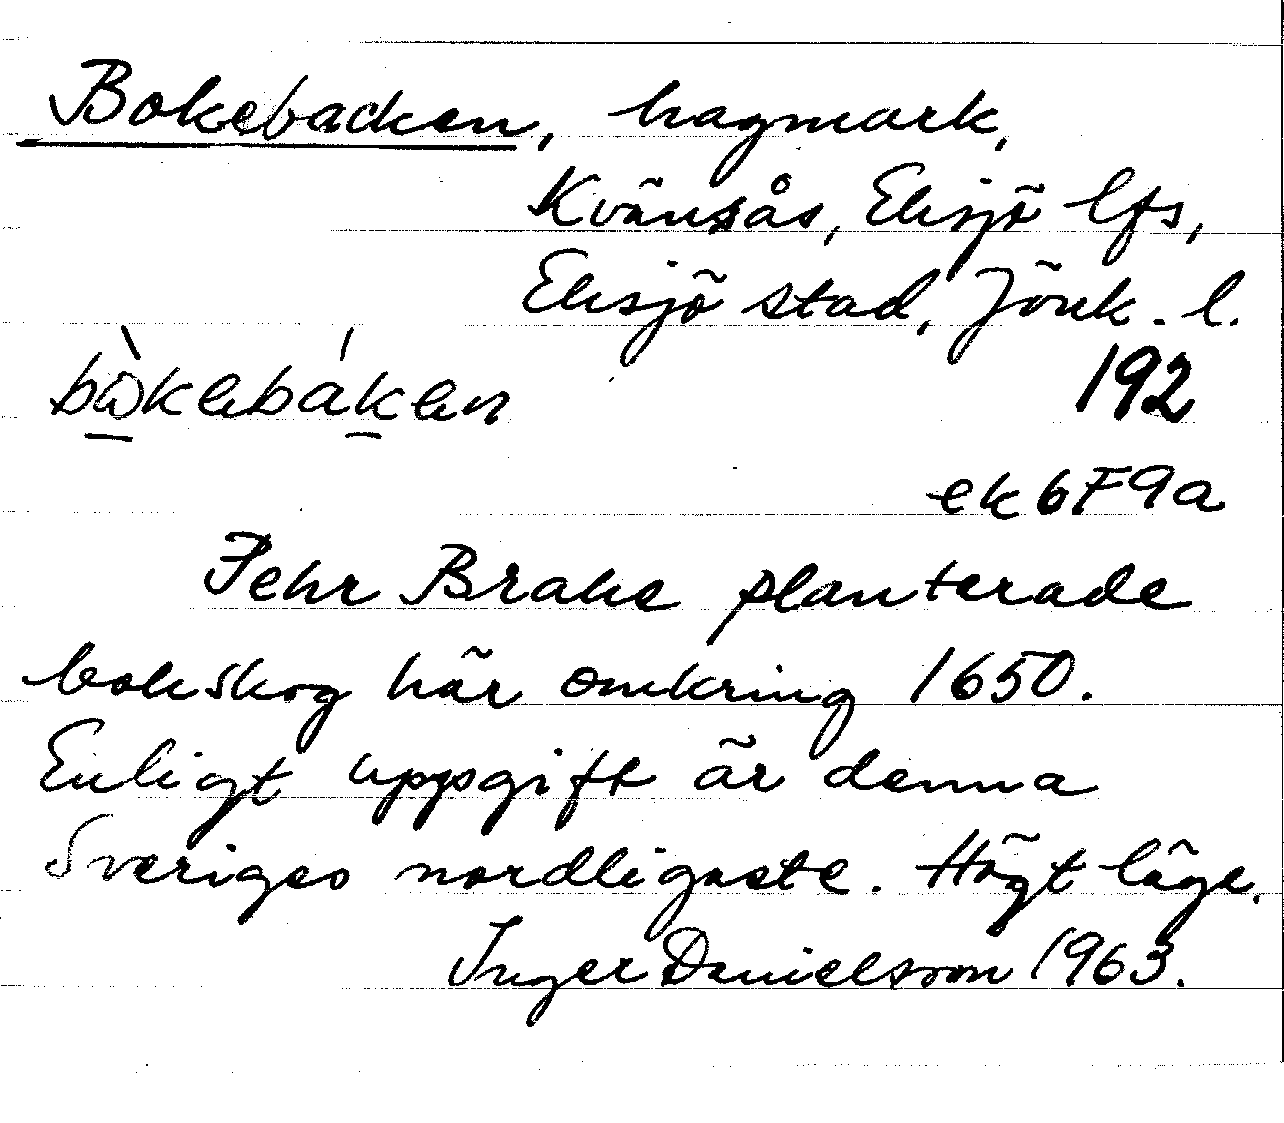 Bokebacken, hagmark,
Kvänsås, Eksjö lfs,
Eksjö stad, Jönk. l.
bòkebáken
192
ek 6F9a
Pehr Brahe planterade
bokskog här omkring 1650.
Enligt uppgift är denna
Sveriges nordligaste. Högt läge.
Inger Danielsson 1963.